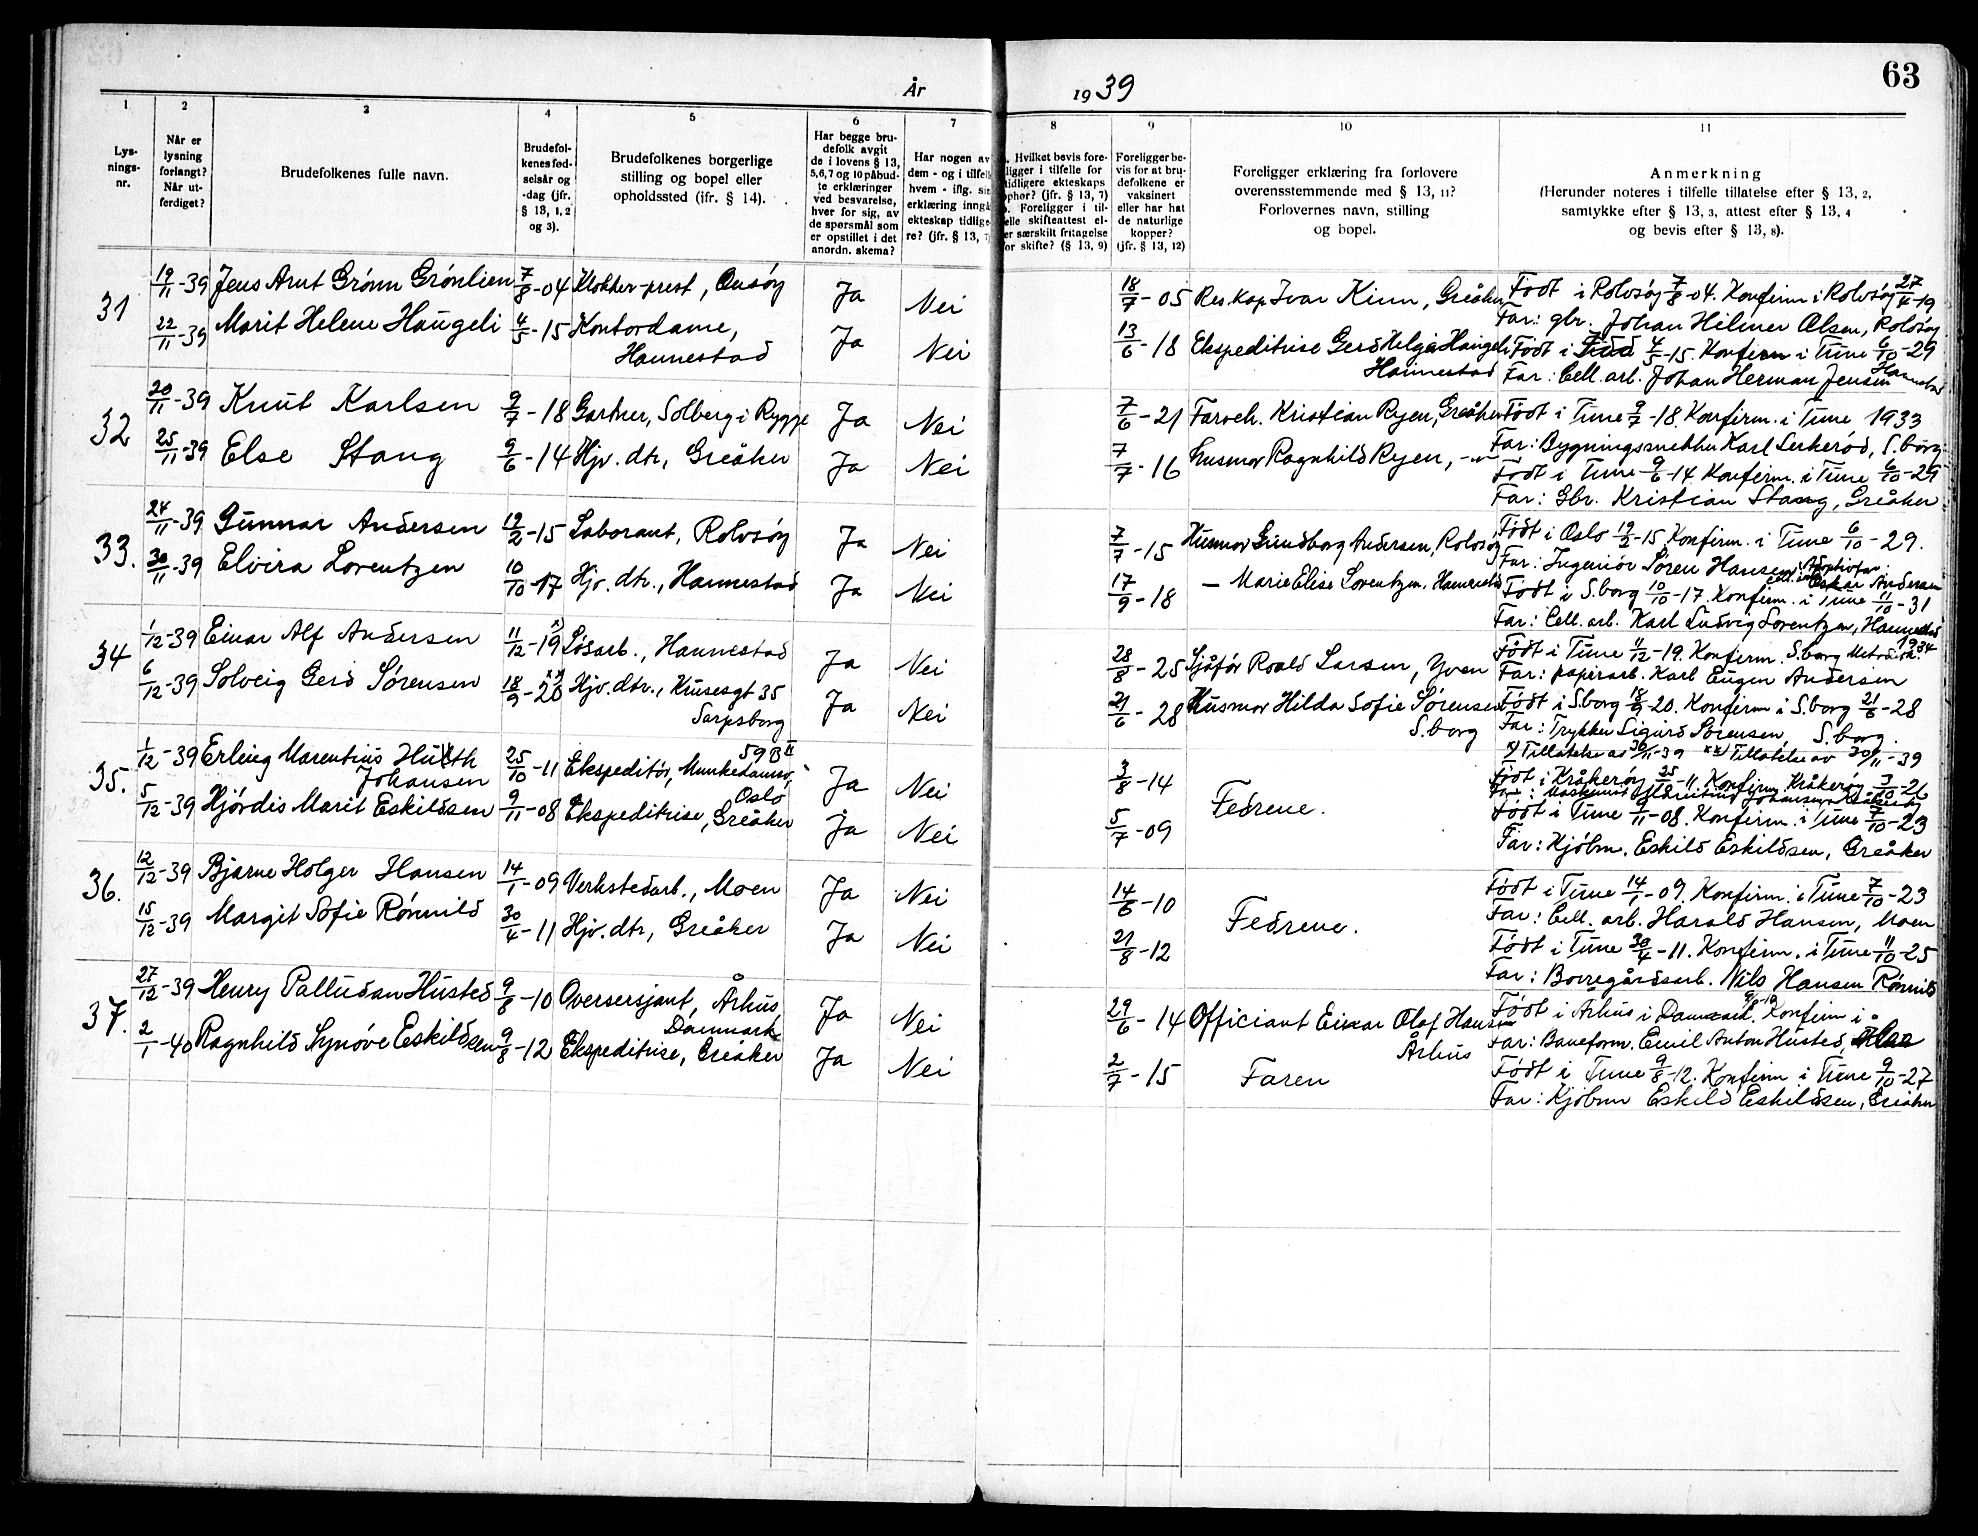 63
År 1939
1
2
3
4
5
6
7
8
9
10
11
Lys-
nings-
nr.
Når er
lysning
forlangt?
Når ut-
ferdiget?
Brudefolkenes fulle navn.
Brudefol-
kenes fød-
selsår og
-dag (jfr.
§ 13, 1, 2
og 3).
Brudefolkenes borgerlige
stilling og bopel eller
opholdssted (ifr. § 14).
Har begge bru-
defolk avgit
de i lovens § 13,
5,6,7 og 10 påbud-
te erklæringer
ved besvarelse,
hver for sig, av
de spørsmål som
er opstillet i det
anordn. skema?
Har nogen av
dem - og i tilfelle
hvem - iflg. sin
erklæring inngå
ekteskap tidlige-
re? (jfr. § 13, 7
. Hvilket bevis fore-
ligger i tilfelle for
tidligere ekteskaps
ophør? (jfr. § 13, 7)
. Foreligger i til-
elle skifteattest el-
er særskilt fritagelse
for skifte? (§ 13, 9)
Foreligger be-
vis for at bru-
defolkene er
vaksinert
eller har hat
de naturlige
kopper?
(jfr. § 13, 12)
Foreligger erklæring fra forlovere
overensstemmende med § 13, 11?
Forlovernes navn, stilling
og bopel.
Anmerkning
(Herunder noteres i tilfelle tillatelse efter § 13, 2,
samtykke efter § 13, 3, attest efter § 13, 4
og bevis efter § 13, 8).
31 19/11-39 Jens Arnt Grönn Grönlien 7/8-04 Klokker-prest, Onsöy Ja Nei 18/7-05 Res.kap Ivar Kinn, Greåker Född i Rolvsöy 7/8-04. Konfirm i Rolvsöy 27/4-19
Far: gbr. Johan Hilmer Olsen, Rolvsöy
22/11-39 Marit Helene Haugeli 4/5-15 Kontordame, Ja Nei 13/6-18 Ekspeditrise Gerd Helga Haugeli Födt i 4/5-15. Konfirm i Tune 6/10-29
Hannestad Hannestad Far: Cell. arb. Johan Herman Jensen Hannestad
32 20/11-39 Knut Karlsen 9/7-18 Gartner, Solberg i Rygge Ja Nei 7/6-21 Farveh. Kristian Ryen, Greåker Födt i Tune 9/7-18. Konfirm. i Tune 1933
Far: Bygningssnekker Karl Lerkeröd, S.borg
25/11-39 Else Stang 9/6-14 Hjv. dtr, Greåker Ja Nei 7/7-16 Husmor Ragnhild Ryen, -"- Födt i Tune 9/6-14 Konfirm. i Tune 6/10-29
Far: Gbr. Kristian Stang, Greåker
33. 24/11-39 Gunnar Andersen 19/2-15 Laborant, Rolvsöy Ja Nei 7/7-15 Husmor Gundborg Andersen, Rolvsöy Födt i Oslo 19/2-15 Konfirm. i Tune 6/10-29.
Far: Ingeniör Sören Hansen, Adoptivfar: Oskar Andersen
30/11-39 Elvira Lorentzen 10/10-17 Hjv. dtr., Hannestad Ja Nei 17/9-18 — Marie Elise Lorentzen. Hannestad Födt i S.borg 10/10-17. Konfirm. i Tune 11/10-31
Far: Cell. arb. Karl Ludvig Lorentzen, Hannestad
34 1/12-39 Einar Alf Andersen 11/12-19 x) Lösarb., Hannestad Ja Nei 28/8-25 Sjåför Roald Larsen, Yven Födt i Tune 11/12-19. Konfirm. S.borg Metodistk. 1934
Far: papirarb. Karl Eugen Andersen
6/12-39 Solveig Gerd Sörensen 18/9-20 xx) Hjv. dtr., Kirusesgt 35 Ja Nei 21/6-28 Husmor Hilda Sofie Sörensen Födt i S.borg 18/9-20. Konfirm i S.borg 21/6-28
Sarpsborg S.borg Far: Trykker Sigurd Sörensen, S.borg.
x) Tillatelse av 30/11-39 xx) Tillatelse av 20/11-39
35. 1/12-39 Erling Marentius Huth 25/10-11 Ekspeditör, Munkedamsv. 59 B II Ja Nei 3/8-14 Fedrene. Födt i Kråkeröy 25/10-11 Konfirm Kråkeröy 3/10-26
Johansen Oslo
5/12-39 Hjördis Marit Eskildsen 9/11-08 Ekspeditrise, Greåker Ja Nei 5/7-09 Födt i Tune 9/11-08. Konfirm. i Tune 7/10-23
Far: Kjöbm. Eskild Eskildsen, Greåker
36. 12/12-39 Bjarne Holger Hansen 14/1-09 Verkstedarb., Moen Ja Nei 14/6-10 Fedrene. Födt i Tune 14/1-09. Konfirm. i Tune 7/10-23
Far: Cell. arb. Harald Hansen, Moen
15/12-39 Margit Sofie Rönnild 30/4-11 Hjv. dtr, Greåker Ja Nei 21/8-12 Födt i Tune 30/4-11. Konfirm. i Tune 11/10-25
Far: Borregårdsarb. Nils Hansen Rönnild
37. 27/12-39 Henry Palludan Husted 9/8-10 Oversersjant, Århus, Ja Nei 29/6-14 Officiant Einar Olaf Hansen Födt i Århus i Danmark. 9/8-10 Konfirm i
Danmark Århus Far: Baneform. Emil Anton Husted,
2/1-40 Ragnhild Synöve Eskildsen 9/8-12 Ekspeditrise, Greåker Ja Nei 2/7-15 Faren Födt i Tune 9/8-12. Konfirm i Tune 9/10-27
Far: Kjöbm Eskild Eskildsen, Greåker